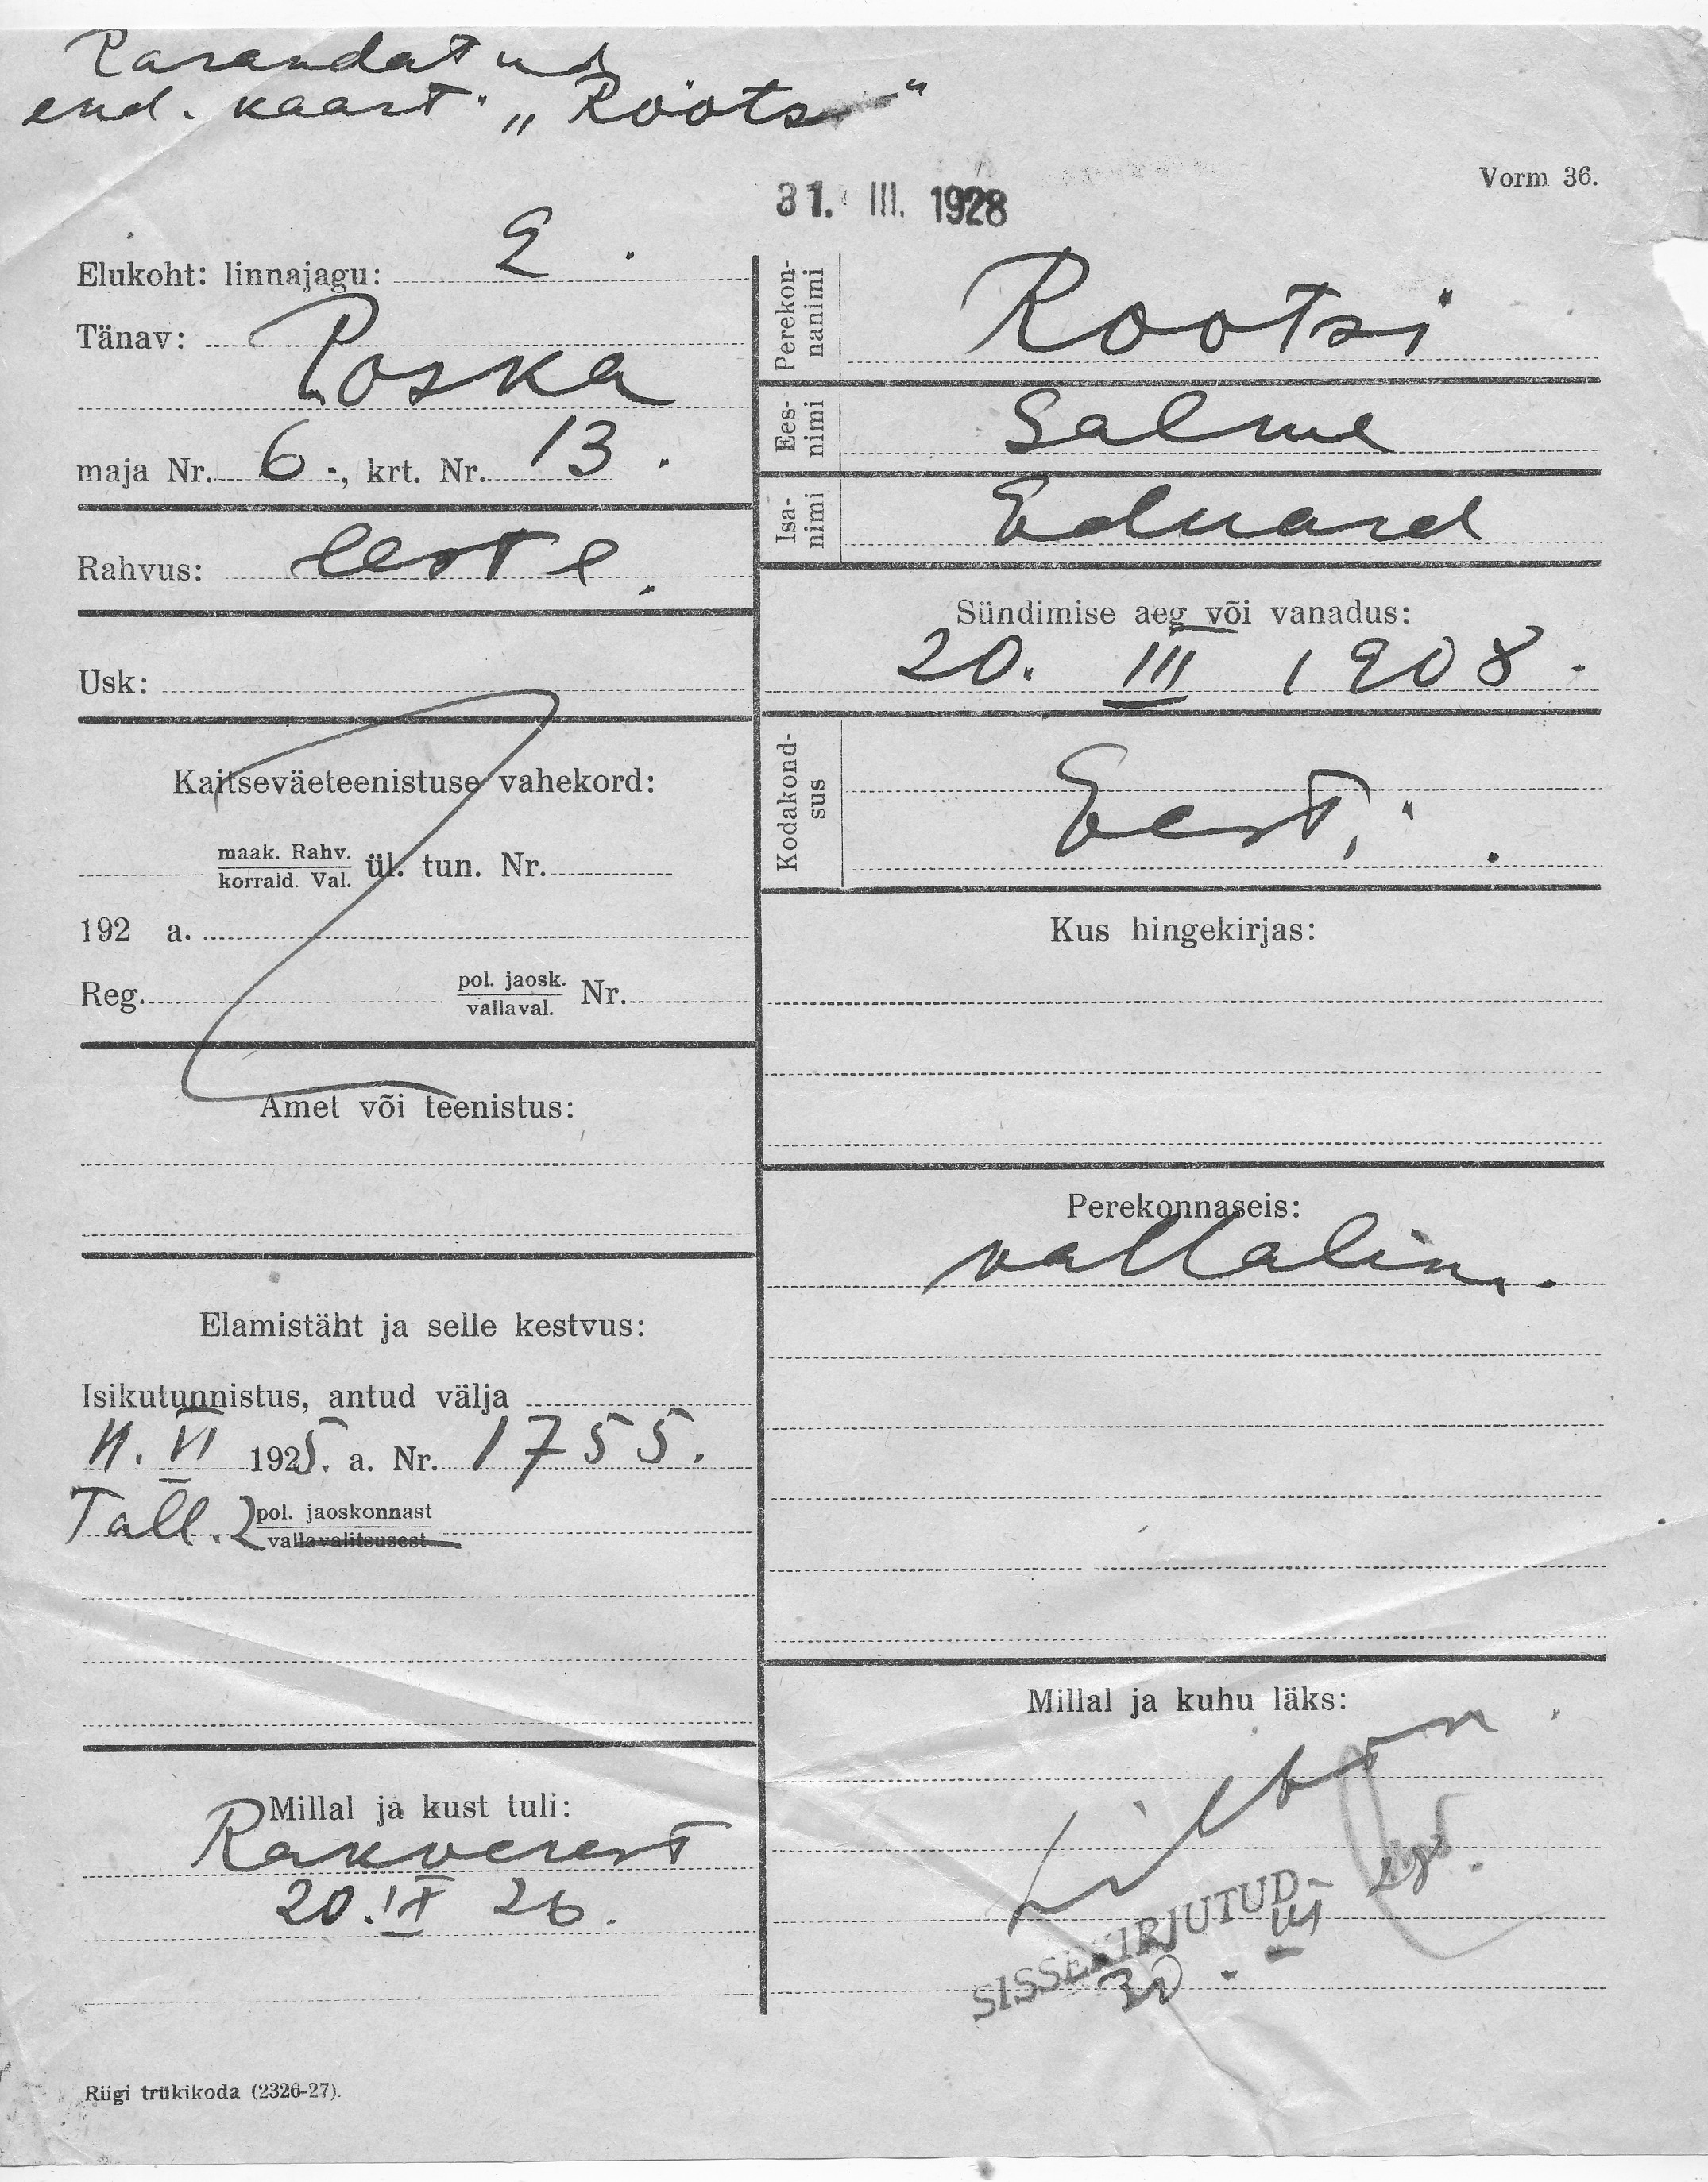 Parandatud
end. kaart. „Rööts“
Vorm 36.
31. III. 1928
Elukoht: linnajagu: 2.
Tänav:
Poska
maja Nr. 6., krt. Nr. 13.
Rahvus: eest
Usk:
Kaitseväeteenistuse vahekord:
maak. Rahv.
korraid. Val. ül. tun. Nr.
192 a.
Reg. pol. jaosk.
vallaval. Nr.
Amet või teenistus:
Elamistäht ja selle kestvus:
Isikutunnistus, antud välja
11. VI 1925. a. Nr. 1755.
Tall. 2 pol. jaoskonnast
vallavalitsusest
Millal ja kust tuli:
Rakverest
20. IX 26.
Perekonnanimi
Rootsi
Eesnimi
Salme
Isanimi
Eduard
Sündimise aeg või vanadus:
20. III 1908.
Kodakondsus
Eesti.
Kus hingekirjas:
Perekonnaseis:
vallalin.
Millal ja kuhu läks:
SISSEKIRJUTUD
30. III
Riigi trükikoda (2326-27).